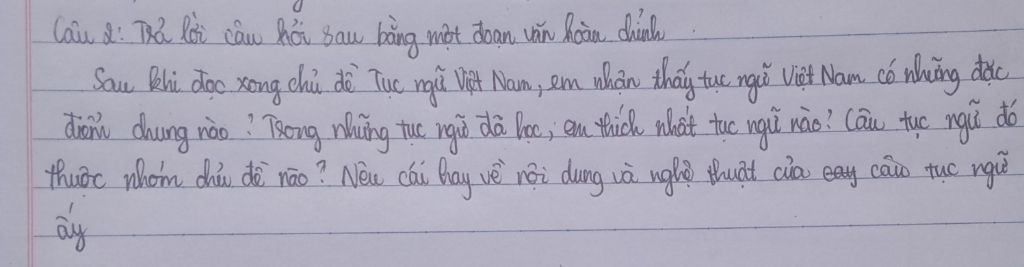 Câu 2: Trả lời câu hỏi sau bằng một đoạn văn hoàn chỉnh.
Sau khi đọc xong chủ đề Tục ngữ Việt Nam, em nhận thấy tục ngữ Việt Nam có những đặc
điểm chung nào? Trong những tục ngữ đã học, em thích nhất tục ngữ nào? Câu tục ngữ đó
thuộc nhóm chủ đề nào? Nêu cái hay về nội dung và nghệ thuật của câu tục ngữ
ấy